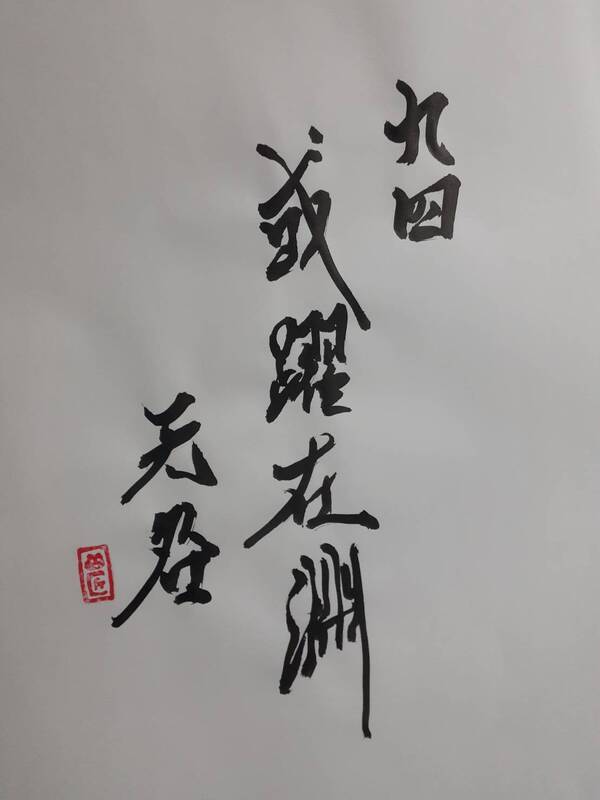 九四
或躍在淵
无咎